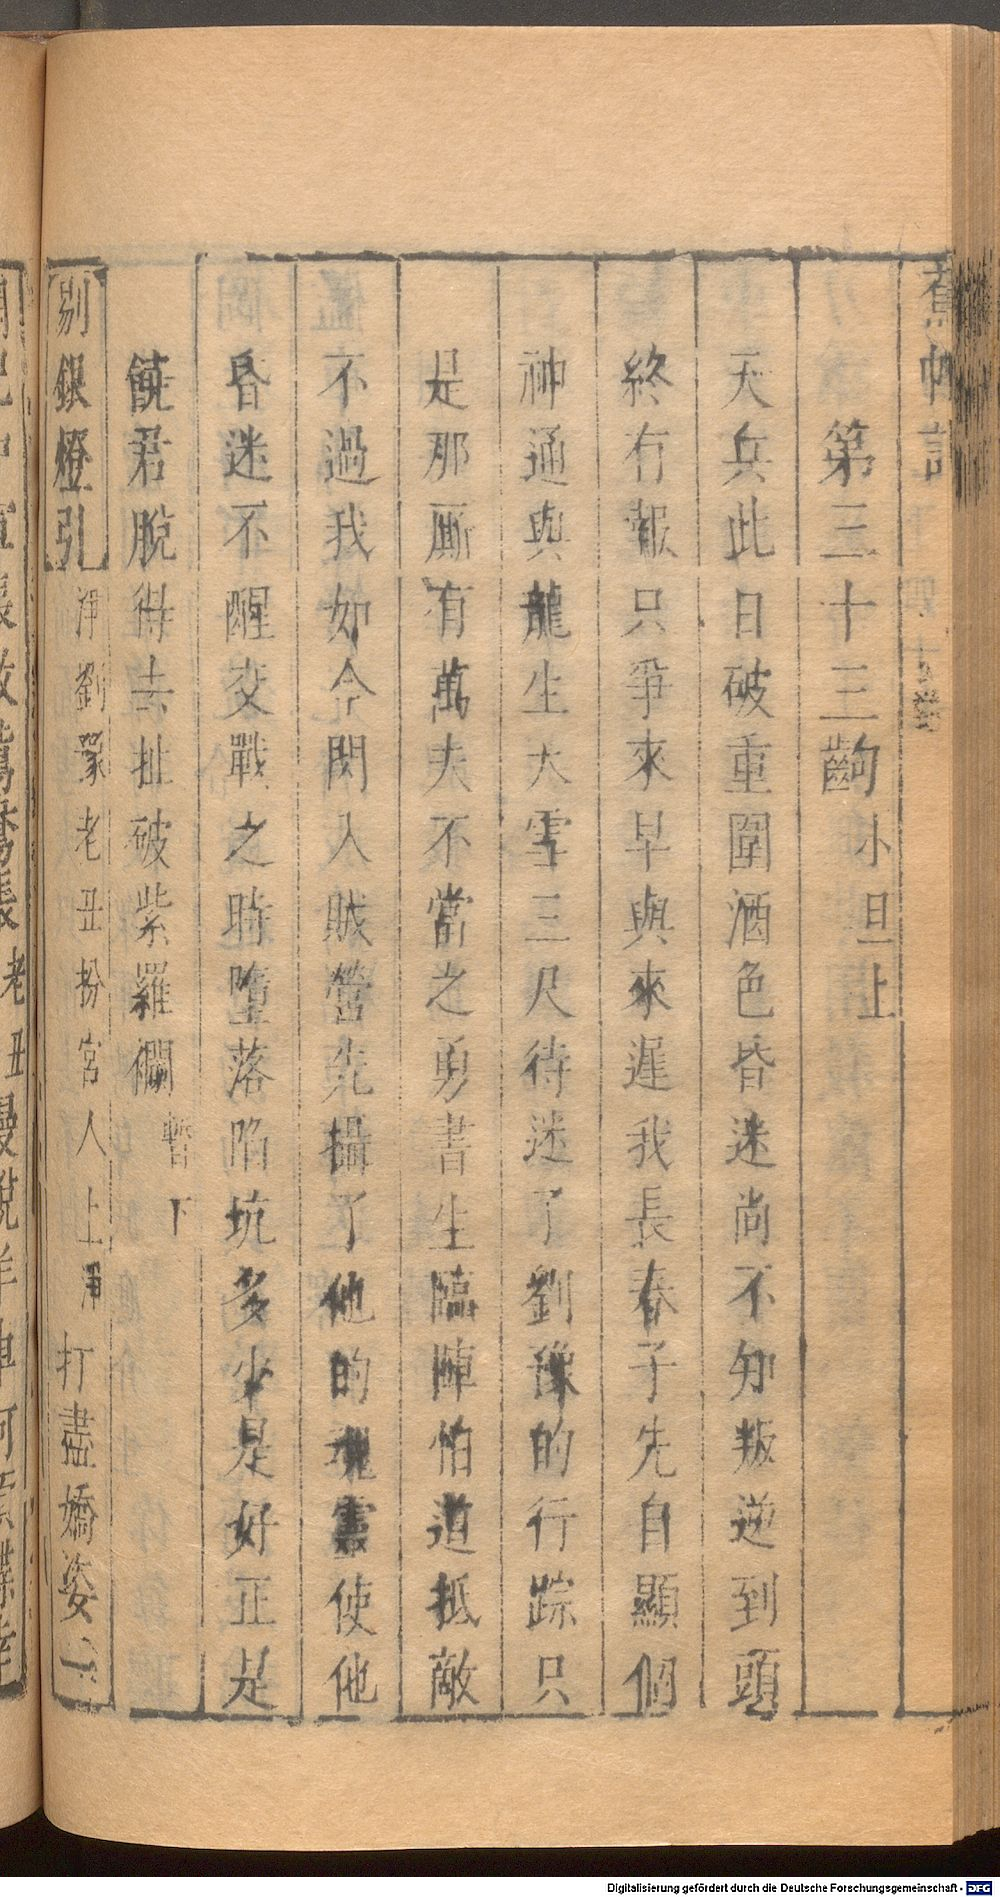 蕉帕記
第三十三齣 小旦上
天兵此日破重圍酒色昏迷尚不知叛逆到頭
終有報只爭來早與來遲我長春子先自顯個
神通與龍生大雪三尺待迷了劉豫的行踪只
是那厮有萬夫不當之勇書生臨陣怕道抵敵
不過我如今閃入賊營先攝了他的魂靈使他
昏迷不醒交戰之時墮落陷坑多少是好正是
饒君脫得去扯破紫羅襴 暫下
剔銀燈引 淨劉豫老丑扮宮人上淨 打盡嬌姿一
Digitalisierung gefördert durch die Deutsche Forschungsgemeinschaft - DFG